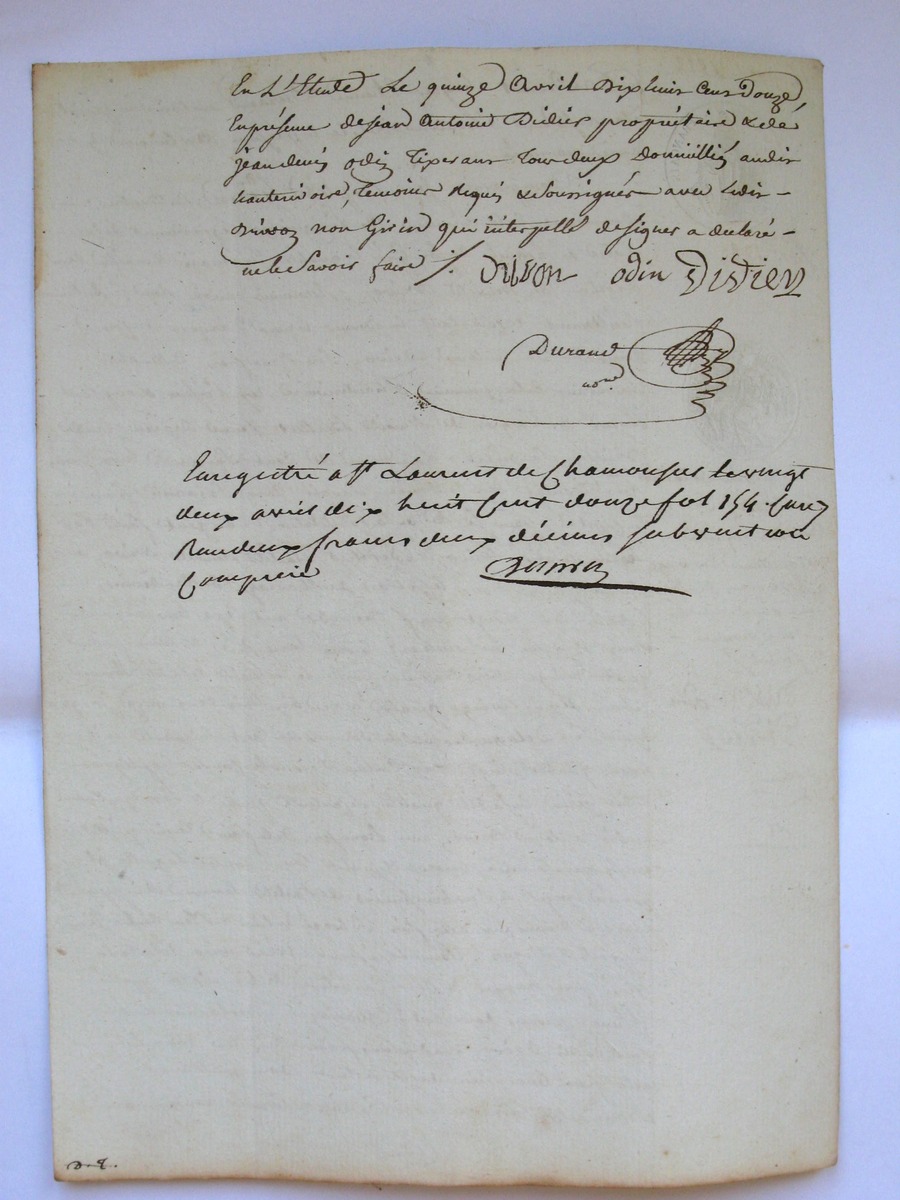 En L'Etude Le quinze avril Dix huit cens Douze
En présence de jean antoine Didier propriétaire & de
jean denis odin Tixerans tous deux Domiciliés audit
hauterivoire, Temoins Requis & Soussignés avec Ledit
Brivon non Girin qui interpellé de signer a declaré
ne le Savoir faire ./.
odin Didier
Durand
Enregistré a St Laurent de Chamousset le vingt
deux avril dix huit Cent douze fol 154
deux francs deux décimes subvention
Comprise
D. E.